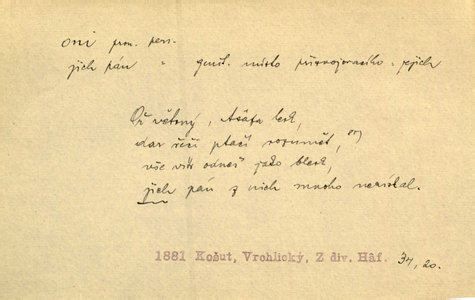 oni pron. pers.
jich pán = genit. místo přisvojovacího = jejich
Oř větrný, Asáfa lesk,
dar řeči ptačí rozumět,
vše vítr odnes' jako blesk,
jich pán z nich mnoho nezískal.
1881 Košut, Vrchlický, Z div. Háf. 34, 20.